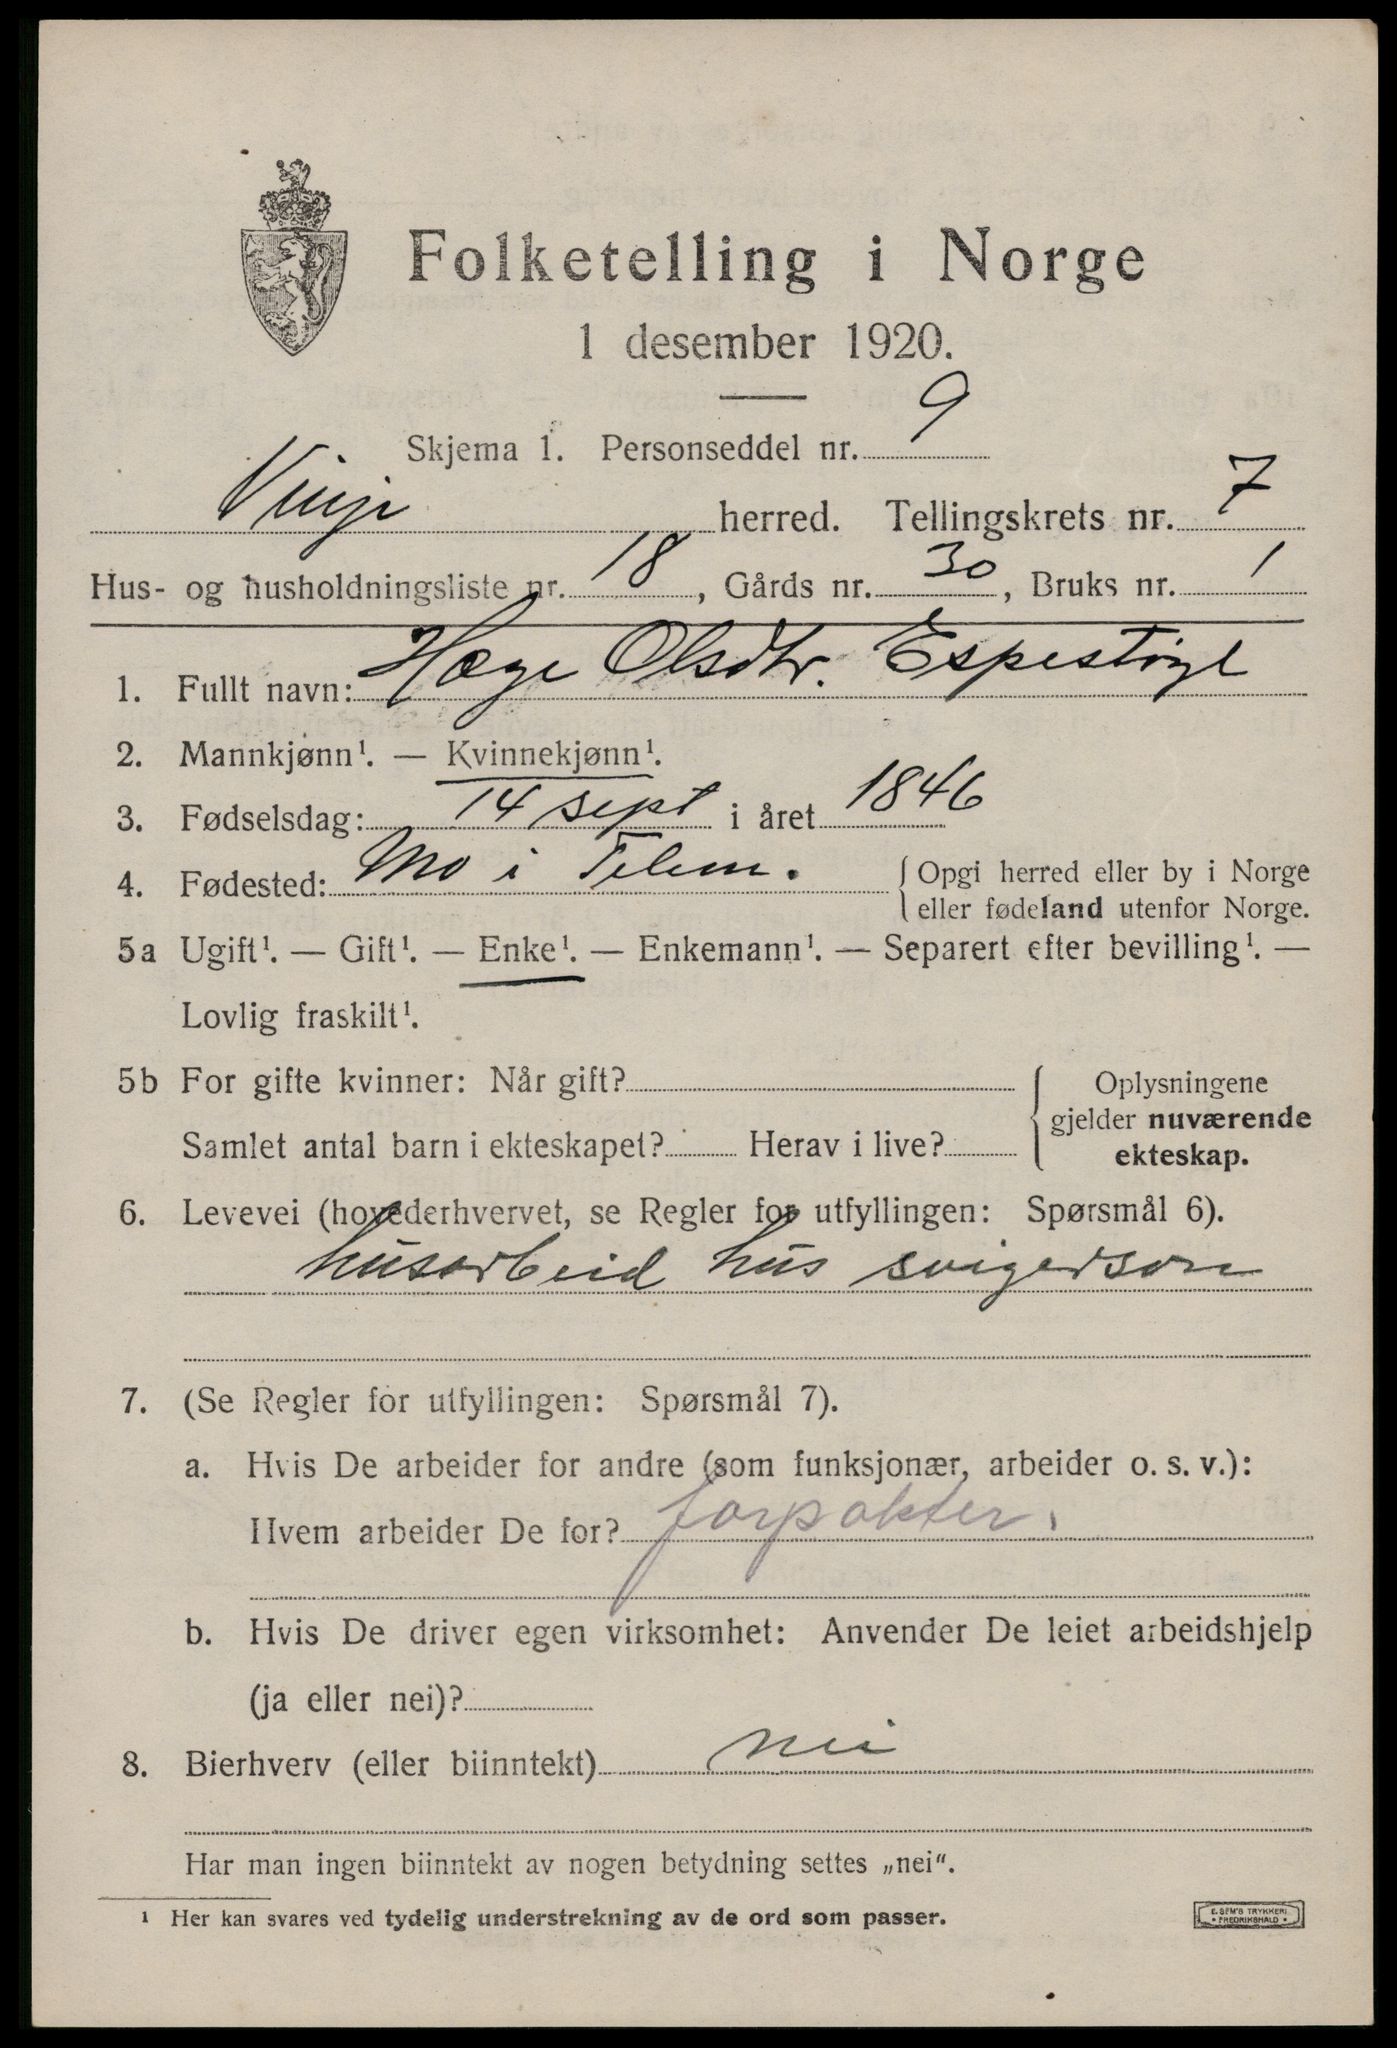 Folketelling i Norge
1 desember 1920.
Skjema 1. Personseddel nr. 9
Vinje herred. Tellingskrets nr. 7
Hus- og husholdningsliste nr. 18, Gårds nr. 30, Bruks nr. 1
1. Fullt navn: Hæge Olsdtr. Espestøyl
2. Mannkjønn¹. — Kvinnekjønn¹.
3. Fødselsdag: 14 sept i året 1846
4. Fødested: Mo i Telem. Opgi herred eller by i Norge
eller fødeland utenfor Norge.
5a Ugift¹. — Gift¹. — Enke¹. — Enkemann¹. — Separert efter bevilling¹. —
Lovlig fraskilt¹.
5b For gifte kvinner: Når gift?
Samlet antal barn i ekteskapet? Herav i live?
Oplysningene
gjelder nuværende
ekteskap.
6. Levevei (hovederhvervet, se Regler for utfyllingen: Spørsmål 6).
husarbeid hus svigerson
7. (Se Regler for utfyllingen: Spørsmål 7).
a. Hvis De arbeider for andre (som funksjonær, arbeider o. s. v.):
Hvem arbeider De for? forpakter.
b. Hvis De driver egen virksomhet: Anvender De leiet arbeidshjelp
(ja eller nei)?
8. Bierhverv (eller biinntekt) nei
Har man ingen biinntekt av nogen betydning settes „nei".
¹ Her kan svares ved tydelig understrekning av de ord som passer.
E. SEM'S TRYKKERI
• FREDRIKSHALD •